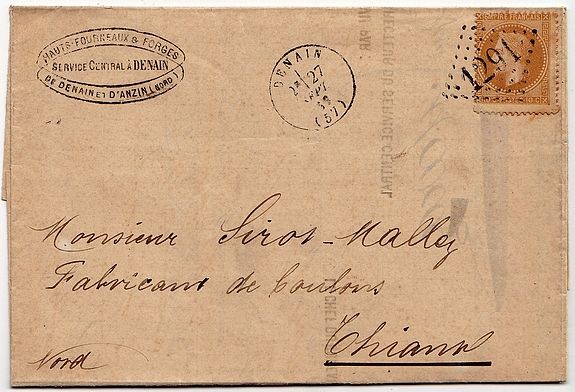 HAUTS-FOURNEAUX & FORGES
SERVICE CENTRAL À DENAIN
DE DENAIN ET D'ANZIN (NORD)
DENAIN
27
SEPT
68
(57)
EMPIRE FRANÇAIS
1291
10 C
DU SERVICE CENTRAL
Monsieur Sirot-Malley
Fabricant de Boulons
Thiant
Nord